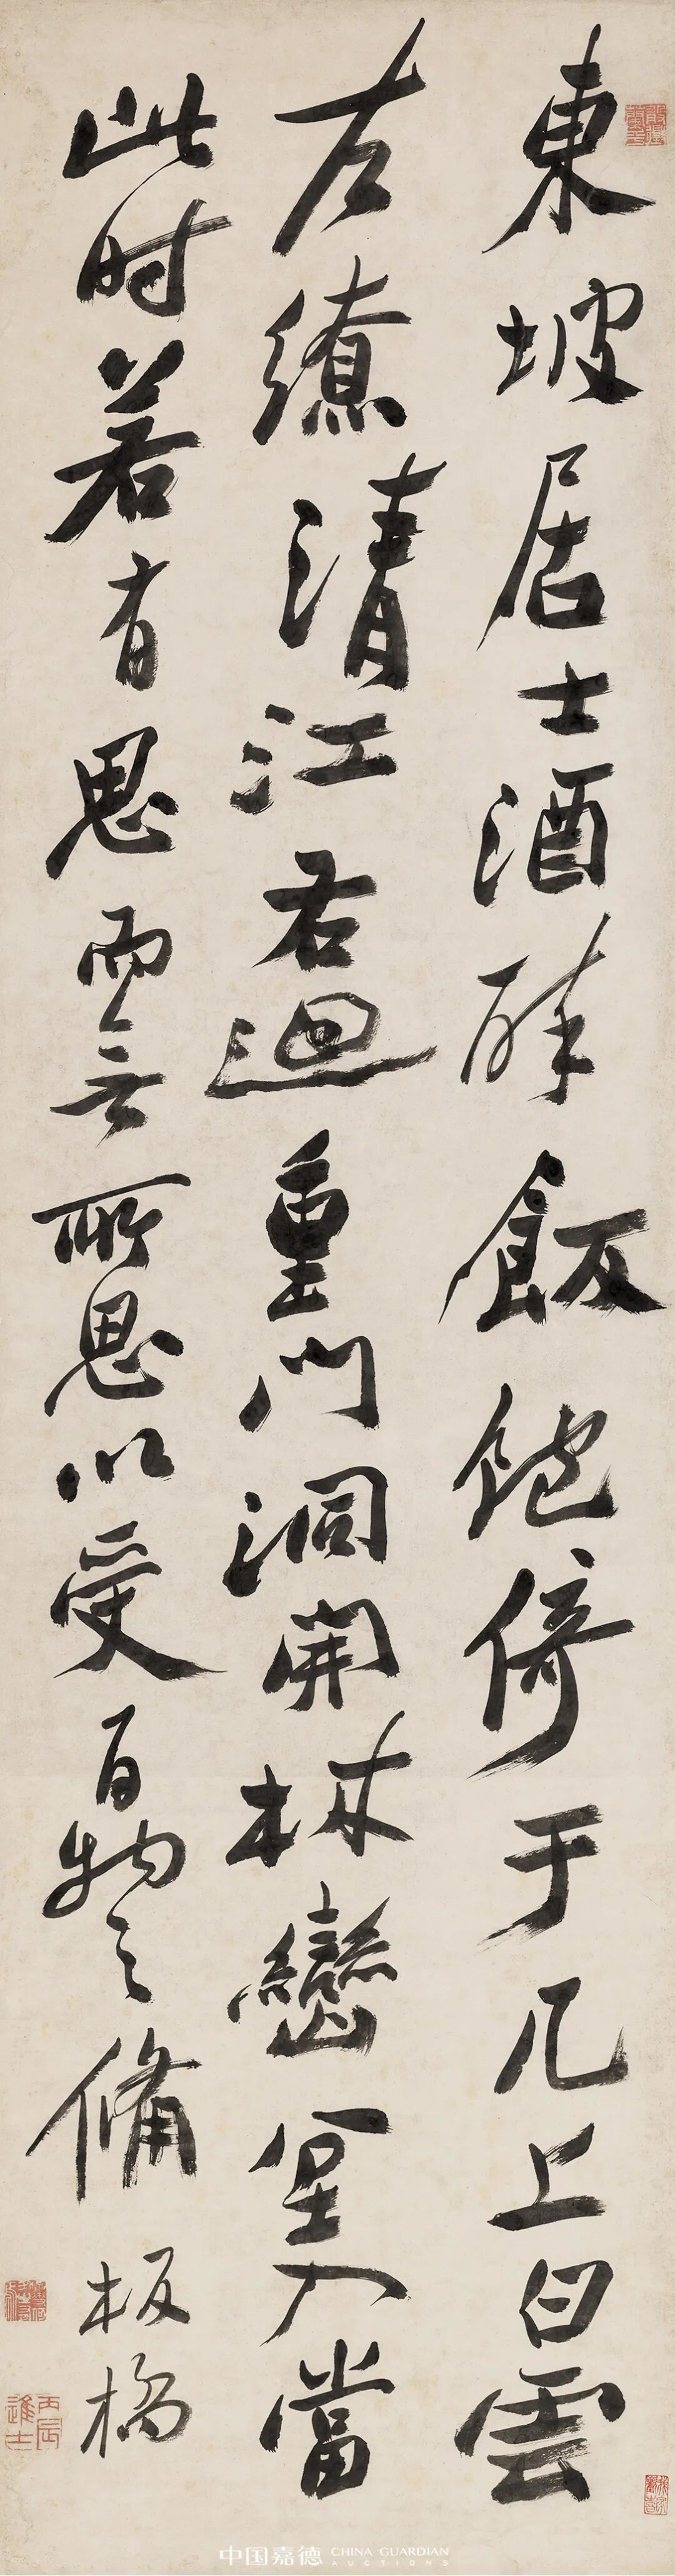 東坡居士酒醉飯飽倚于几上白雲
左繚清江右迴重門洞開林巒坌入當
此时若有思而無所思以受百物之備
板橋
丙辰進士
中国嘉德 CHINA GUARDIAN
AUCTIONS